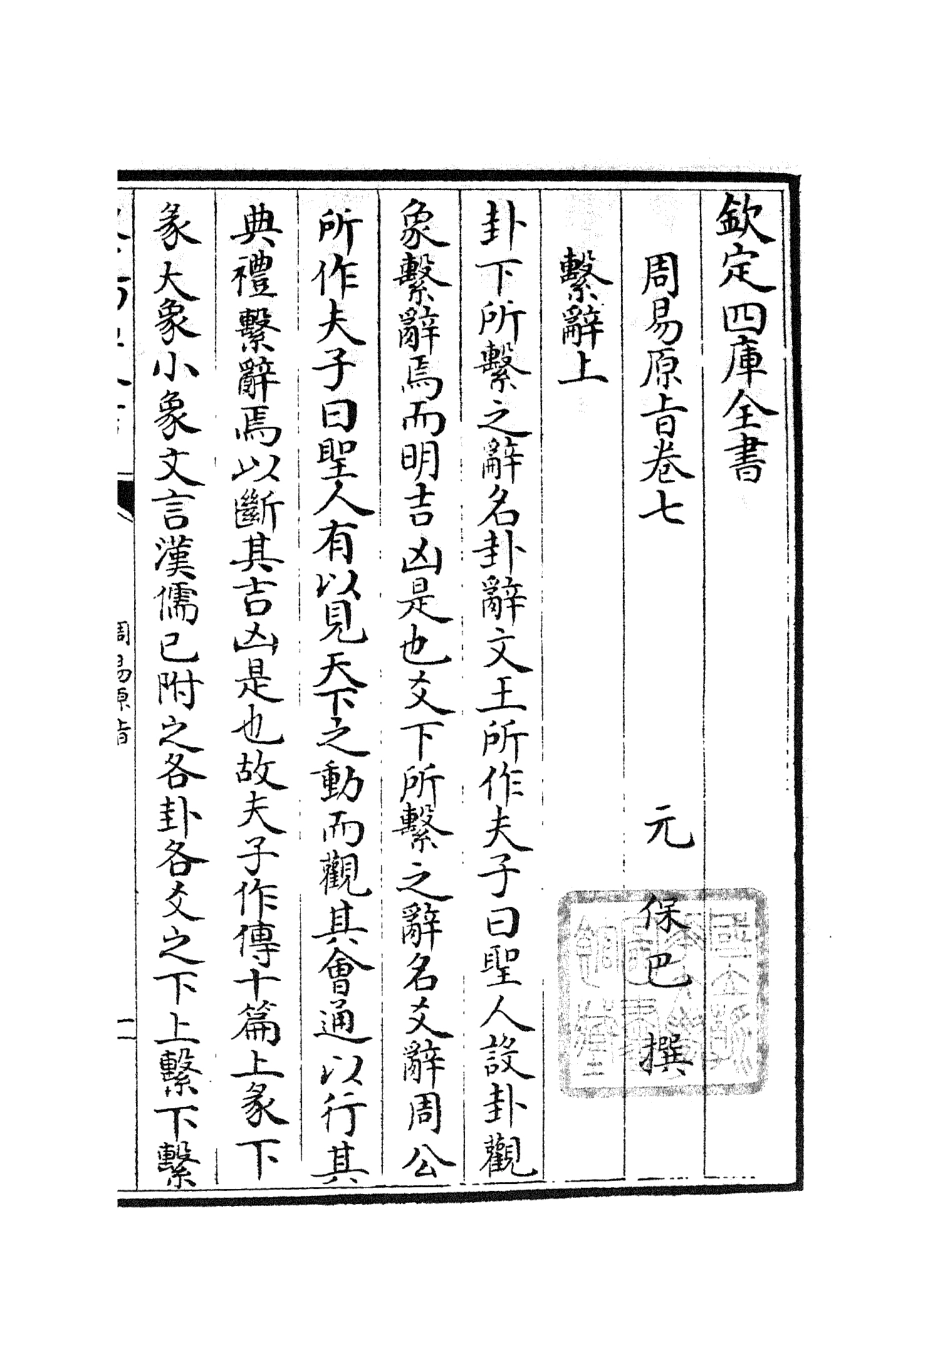 欽定四庫全書
周易原旨卷七 元 保巴 撰
繫辭上
卦下所繫之辭名卦辭文王所作夫子曰聖人設卦觀
象繫辭焉而明吉凶是也爻下所繫之辭名爻辭周公
所作夫子曰聖人有以見天下之動而觀其會通以行其
典禮繫辭焉以斷其吉凶是也故夫子作傳十篇上彖下
彖大象小象文言漢儒已附之各卦各爻之下上繫下繫
周易原旨